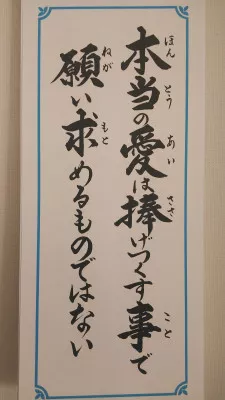 本当の愛は捧げつくす事で
願い求めるものではない
ほんとう あい ささ こと
ねが もと